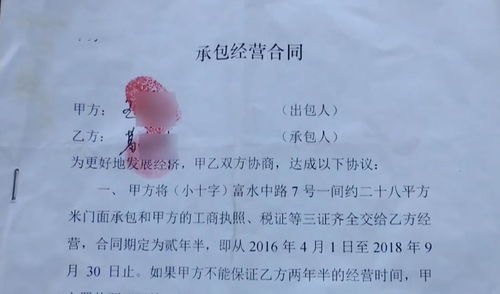 承包经营合同
甲方：王 （出包人）
乙方：葛 （承包人）
为更好地发展经济，甲乙双方协商，达成以下协议：
一、甲方将（小十字）富水中路7号一间约二十八平方
米门面承包和甲方的工商执照、税证等三证齐全交给乙方经
营，合同期定为贰年半，即从2016年4月1日至2018年9
月30日止。如果甲方不能保证乙方两年半的经营时间，甲